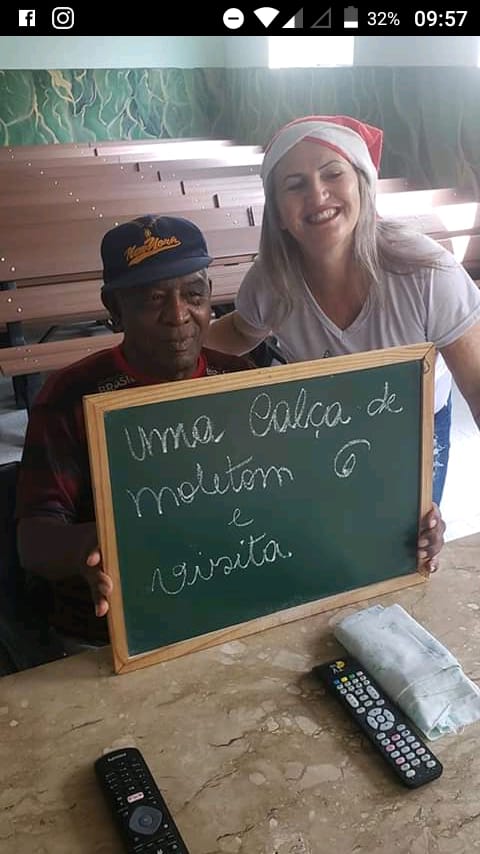 32% 09:57
New York
BRASIL
Uma Calça de
moletom G
e
visita.